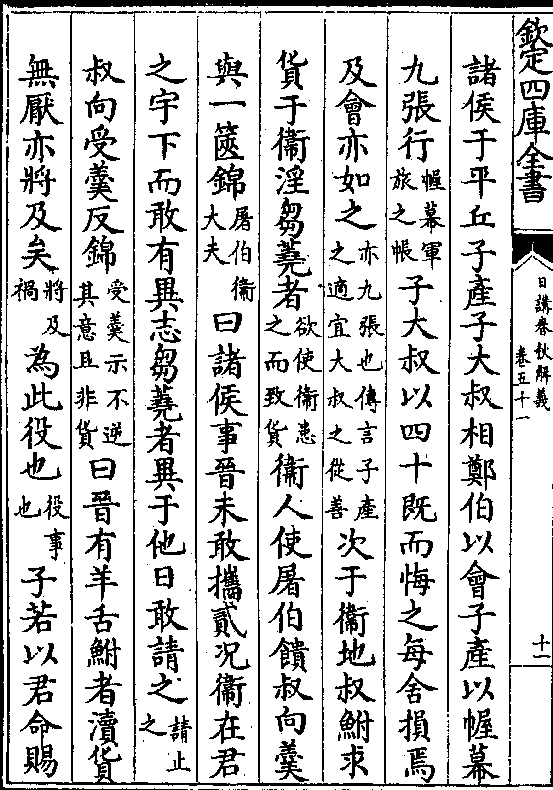 欽定四庫全書
日講春秋解義
卷五十一
十一
諸侯于平丘子產子大叔相鄭伯以會子產以幄幕
九張行幄幕軍旅之帳子大叔以四十既而悔之每舍損焉
及會亦如之亦九張也傳言子產之適宜大叔之從善次于衞地叔鮒求
貨于衞淫芻蕘者欲使衞患之而致貨衞人使屠伯饋叔向羹
與一篋錦屠伯衞大夫曰諸侯事晉未敢攜貳况衞在君
之宇下而敢有異志芻蕘者異于他日敢請之請止之
叔向受羹反錦受羹示不逆其意且非貨曰晉有羊舌鮒者瀆貨
無厭亦將及矣將及禍為此役也役事也子若以君命賜